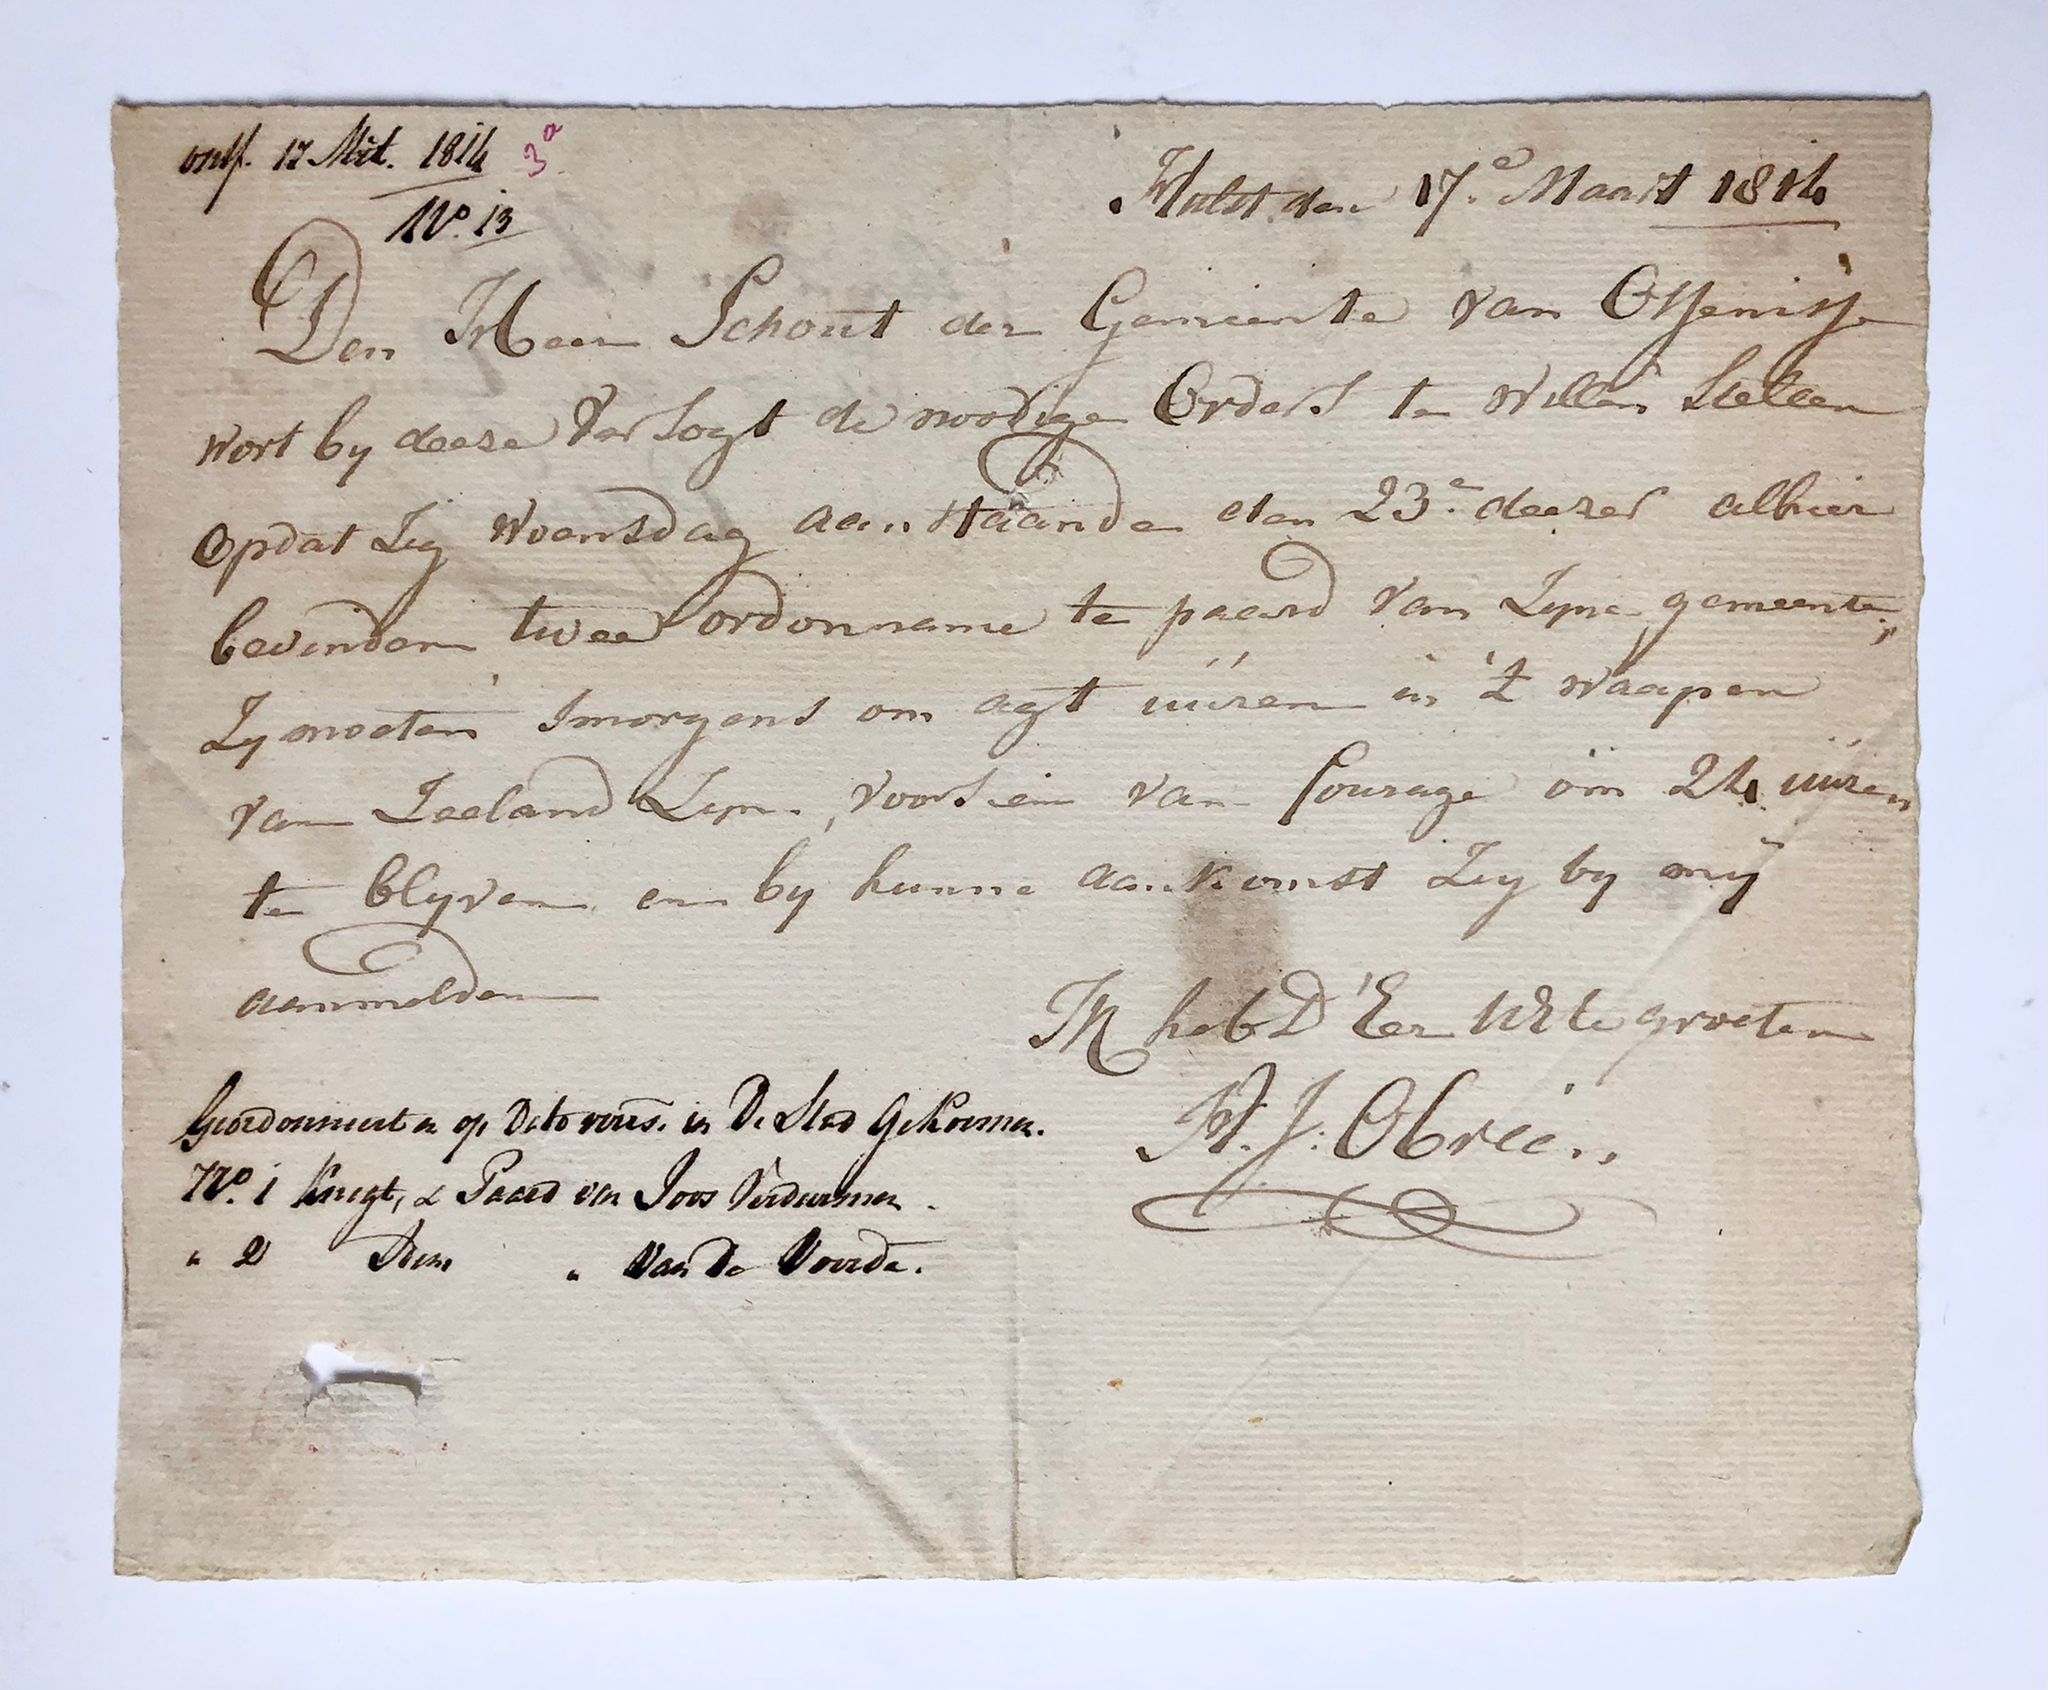 ontf. 17 Mrt. 1814 3a
No. 13
Hulst den 17.e Maart 1814
Den Heer Schout der Gemeente van Ossenisse
wort by deeze versogt de noodige Orders te willen stellen
opdat zig woensdag aanstaande den 23.e deezer alhier
bevinden twee ordonnance te paard van zyne gemeente,
zy moeten smorgens om agt uuren in 't waapen
van Zeeland zyn, voorsien van fourage om 24 uuren
te blyven en by hunne aankomst zig by mij
aanmelden
Ik heb D'Eer UE te groeten
H. J. Obreen
Geordonneert en op Dato voors. in De Stad Gekoemen.
No. 1 Knegt, & Paard van Joos Verdurmen.
" 2 Idem " Van De Voorde.